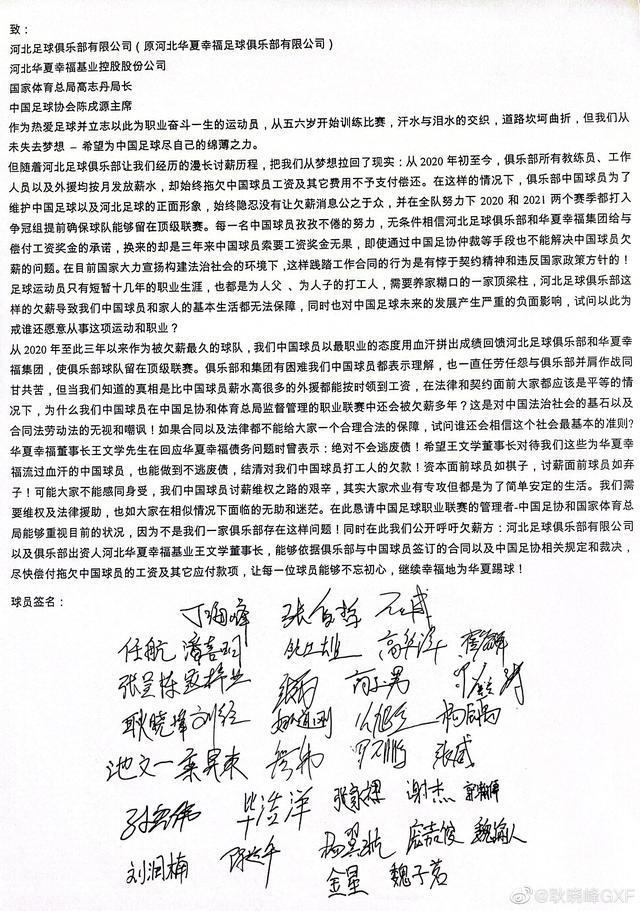 致：
河北足球俱乐部有限公司（原河北华夏幸福足球俱乐部有限公司）
河北华夏幸福基业控股股份公司
国家体育总局高志丹局长
中国足球协会陈戌源主席
作为热爱足球并立志以此为职业奋斗一生的运动员，从五六岁开始训练比赛，汗水与泪水的交织，道路坎坷曲折，但我们从
未失去梦想 – 希望为中国足球尽自己的绵薄之力。
但随着河北足球俱乐部让我们经历的漫长讨薪历程，把我们从梦想拉回了现实：从 2020 年初至今，俱乐部所有教练员、工作
人员以及外援均按月发放薪水，却始终拖欠中国球员工资及其它费用不予支付偿还。在这样的情况下，俱乐部中国球员为了
维护中国足球以及河北足球的正面形象，始终隐忍没有让欠薪消息公之于众，并在全队努力下 2020 和 2021 两个赛季都打入
争冠组提前确保球队能够留在顶级联赛。每一名中国球员孜孜不倦的努力，无条件相信河北足球俱乐部和华夏幸福集团给与
偿付工资奖金的承诺，换来的却是三年来中国球员索要工资奖金无果，即使通过中国足协仲裁等手段也不能解决中国球员欠
薪的问题。在目前国家大力宣扬构建法治社会的环境下，这样践踏工作合同的行为是有悖于契约精神和违反国家政策方针的！
足球运动员只有短暂十几年的职业生涯，也都是为人父 、为人子的打工人，需要养家糊口的一家顶梁柱，河北足球俱乐部这
样的欠薪导致我们中国球员和家人的基本生活都无法保障，同时也对中国足球未来的发展产生严重的负面影响，试问以此为
戒谁还愿意从事这项运动和职业？
从 2020 年至此三年以来作为被欠薪最久的球队，我们中国球员以最职业的态度用血汗拼出成绩回馈河北足球俱乐部和华夏幸
福集团，使俱乐部球队留在顶级联赛。俱乐部和集团有困难我们中国球员都表示理解，也一直任劳任怨与俱乐部并肩作战同
甘共苦，但当我们知道的真相是比中国球员薪水高很多的外援都能按时领到工资，在法律和契约面前大家都应该是平等的情
况下，为什么我们中国球员在中国足协和体育总局监督管理的职业联赛中还会被欠薪多年？这是对中国法治社会的基石以及
合同法劳动法的无视和嘲讽！如果合同以及法律都不能给大家一个合理合法的保障，试问谁还会相信这个社会最基本的准则?
华夏幸福董事长王文学先生在回应华夏幸福债务问题时曾表示：绝对不会逃废债！希望王文学董事长对待我们这些为华夏幸
福流过血汗的中国球员，也能做到不逃废债，结清对我们中国球员打工人的欠款！资本面前球员如棋子，讨薪面前球员如弃
子！可能大家不能感同身受，我们中国球员讨薪维权之路的艰辛，其实大家术业有专攻但都是为了简单安定的生活。我们需
要维权及法律援助，也如大家在相似情况下面临的无助和迷茫。在此恳请中国足球职业联赛的管理者-中国足协和国家体育总
局能够重视目前的状况，因为不是我们一家俱乐部存在这样问题！同时在此我们公开呼吁欠薪方：河北足球俱乐部有限公司
以及俱乐部出资人河北华夏幸福基业王文学董事长，能够依据俱乐部与中国球员签订的合同以及中国足协相关规定和裁决，
尽快偿付拖欠中国球员的工资及其它应付款项，让每一位球员能够不忘初心，继续幸福地为华夏踢球！
球员签名：
丁海峰
任航 潘喜明 高华泽
张呈栋
耿晓峰
池文一 张威
毕津洋 张家棋 谢杰
刘润楠 庞嘉俊
金星 魏子茗
@耿晓峰GXF